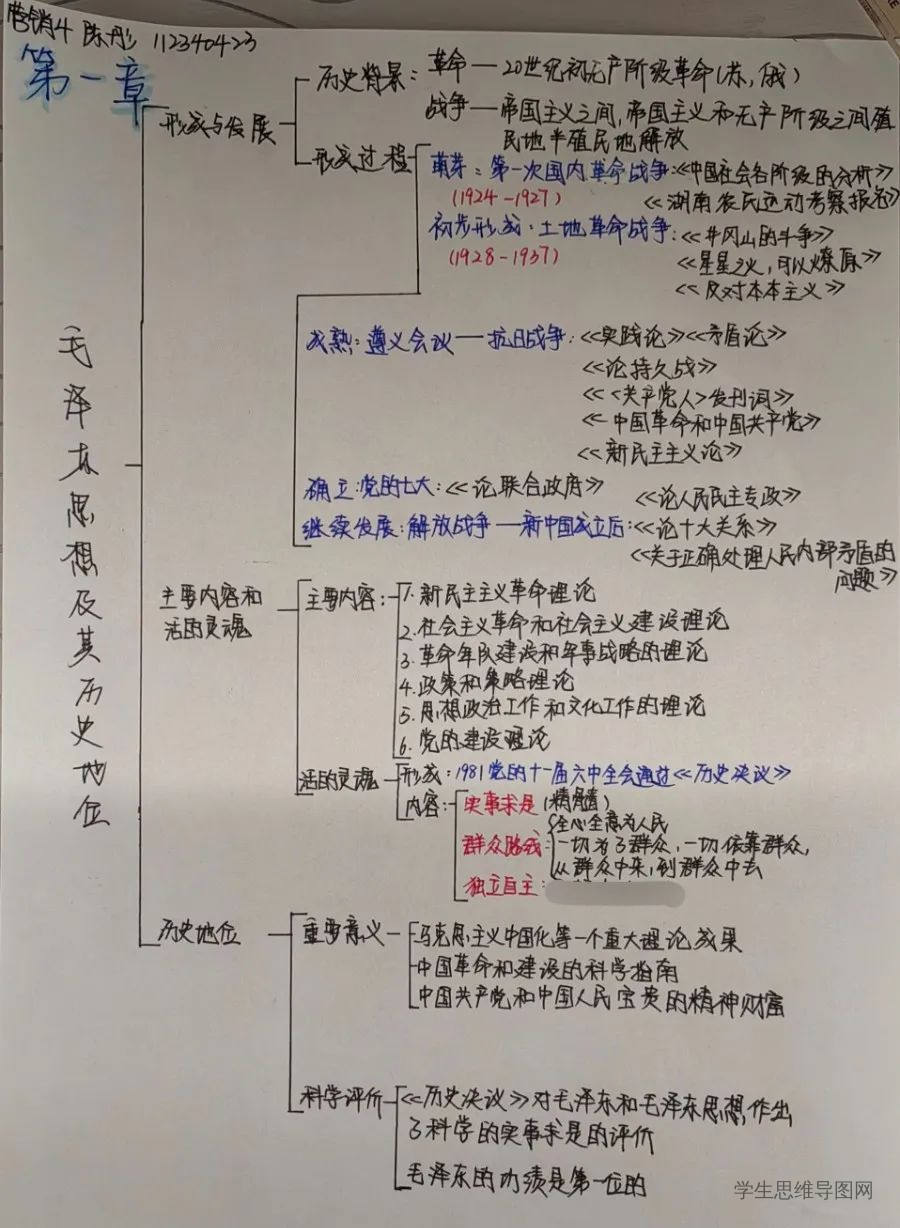 营销4 陈彤 112340423
第一章
毛泽东思想及其历史地位
形成与发展
历史背景：革命—20世纪初无产阶级革命(苏,俄)
战争—帝国主义之间,帝国主义和无产阶级之间殖
民地半殖民地解放
形成过程
萌芽：第一次国内革命战争:《中国社会各阶级的分析》
(1924-1927) 《湖南农民运动考察报告》
初步形成：土地革命战争:《井冈山的斗争》
(1928-1937) 《星星之火,可以燎原》
《反对本本主义》
成熟：遵义会议—抗日战争:《实践论》《矛盾论》
《论持久战》
《<共产党人>发刊词》
《中国革命和中国共产党》
《新民主主义论》
确立:党的七大:《论联合政府》 《论人民民主专政》
继续发展:解放战争—新中国成立后:《论十大关系》
《关于正确处理人民内部矛盾的
问题》
主要内容和
活的灵魂
主要内容:
1.新民主主义革命理论
2.社会主义革命和社会主义建设理论
3.革命军队建设和军事战略的理论
4.政策和策略理论
5.思想政治工作和文化工作的理论
6.党的建设理论
活的灵魂
形成:1981党的十一届六中全会通过《历史决议》
内容:
实事求是(精髓)
全心全意为人民
群众路线:一切为了群众,一切依靠群众,
从群众中来,到群众中去
独立自主:
历史地位
重要意义
马克思主义中国化第一个重大理论成果
中国革命和建设的科学指南
中国共产党和中国人民宝贵的精神财富
科学评价
《历史决议》对毛泽东和毛泽东思想作出
了科学的实事求是的评价
毛泽东的功绩是第一位的
学生思维导图网